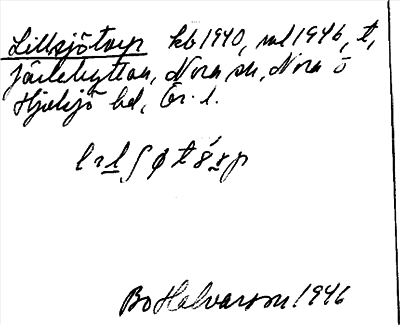 Lillsjötorp kb 1940, ml 1946, t,
Järlehyttan, Nora sn, Nora o
Hjulsjö bd, Ör. l.
Bo Halvarson 1946